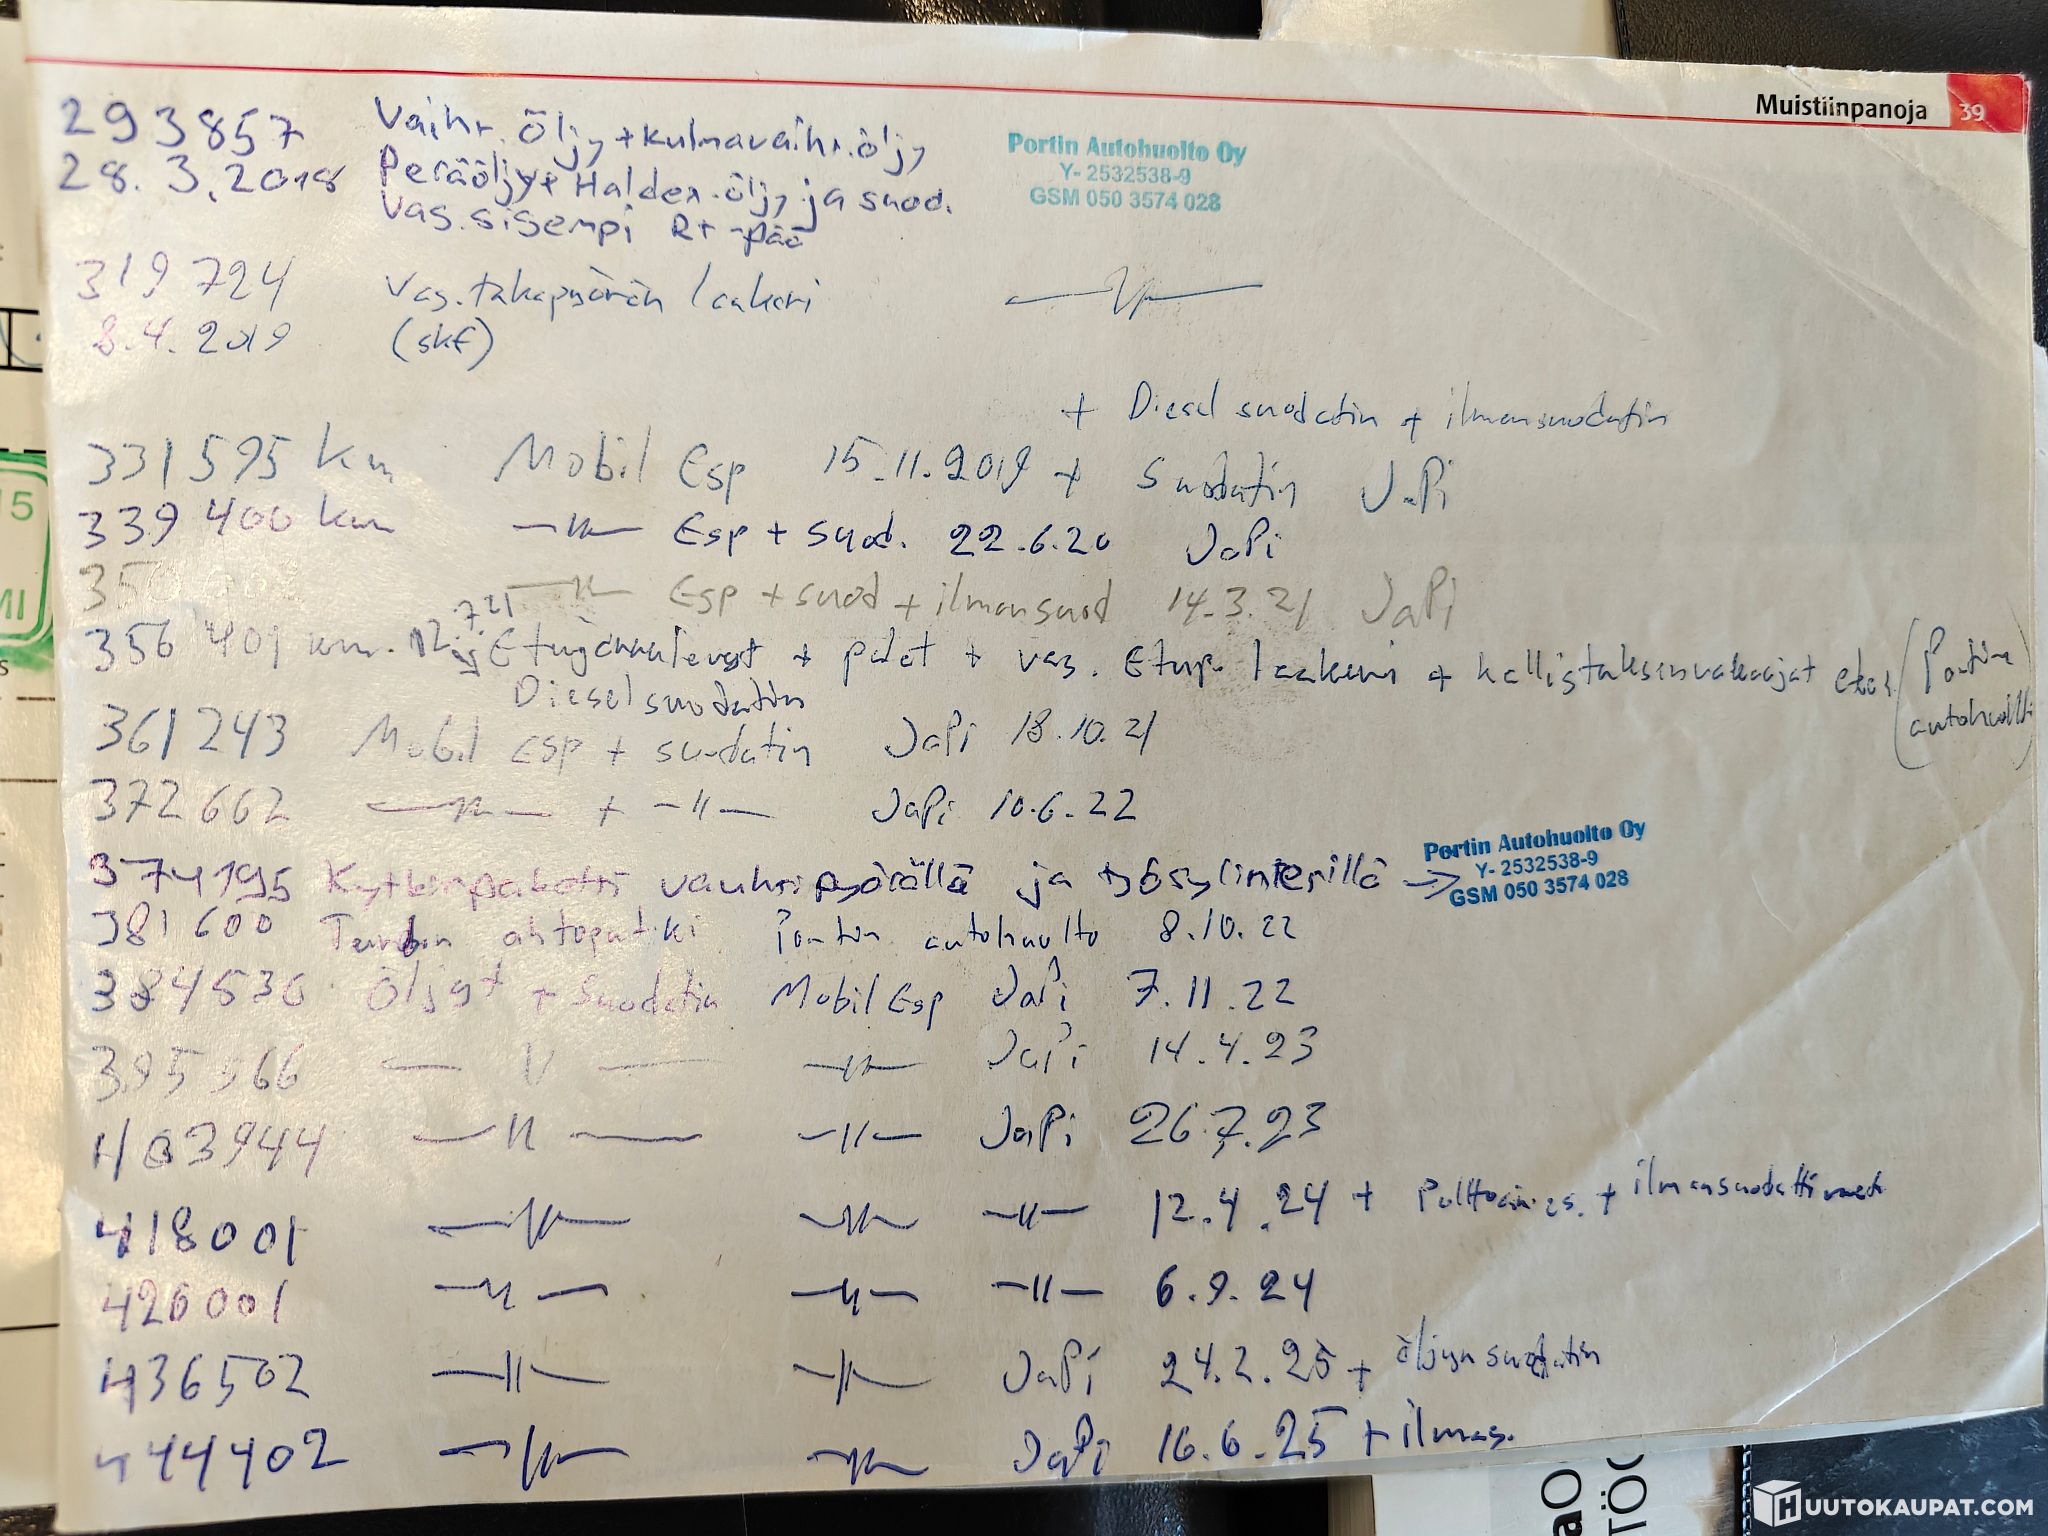 Muistiinpanoja 39
293857 Vaihr. öljy + kulmavaihr. öljy
28.3.2018 Peräöljy + Haldex-öljy ja suod.
Vas. sisempi RT-pää
Portin Autohuolto Oy
Y- 2532538-9
GSM 050 3574 028
319724 Vas. takapyörän laakeri —〃—
8.4.2019 (skf)
+ Diesel suodatin + ilmansuodatin
331595 km Mobil Esp 15.11.2019 + Suodatin JaPi
339400 km —〃— Esp + suod. 22.6.20 JaPi
—〃— Esp + suod + ilmansuod 14.3.21 JaPi
356401 km. 12.7.21 Etujarrulevyt + palat + vas. Etup. laakeri + kallistuksenvakaajat (Portin
Dieselsuodatin autohuolto)
361243 Mobil Esp + suodatin JaPi 18.10.21
372662 —〃— + —〃— JaPi 10.6.22
374195 Kytkinpaketti vauhtipyörällä ja työsylinterillä →
Portin Autohuolto Oy
Y- 2532538-9
GSM 050 3574 028
381600 Turbon ahtoputki Portin autohuolto 8.10.22
384536 Öljyt + Suodatin Mobil Esp JaPi 7.11.22
395566 —〃— —〃— JaPi 14.4.23
403944 —〃— —〃— JaPi 26.7.23
418001 —〃— —〃— —〃— 12.4.24 + Polttoain.es. + ilmansuodattimet
426001 —〃— —〃— —〃— 6.9.24
436502 —〃— —〃— JaPi 24.2.25 + öljynsuodatin
444402 —〃— —〃— JaPi 16.6.25 + ilmas.
HUUTOKAUPAT.COM